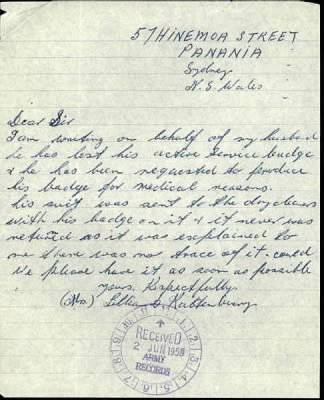 57 HINEMOA STREET
PANANIA
Sydney
N.S. Wales
Dear Sir
I am writing on behalf of my husband
he has lost his active service badge
& he has been requested to produce
his badge for medical reasons.
his suit was sent to the dry cleaners
with his badge on it & it never was
returned as it was explained to
me there was no trace of it. could
we please have it as soon as possible
yours. Respectfully.
(Mrs)
RECEIVED
2 JUN 1958
ARMY
RECORDS